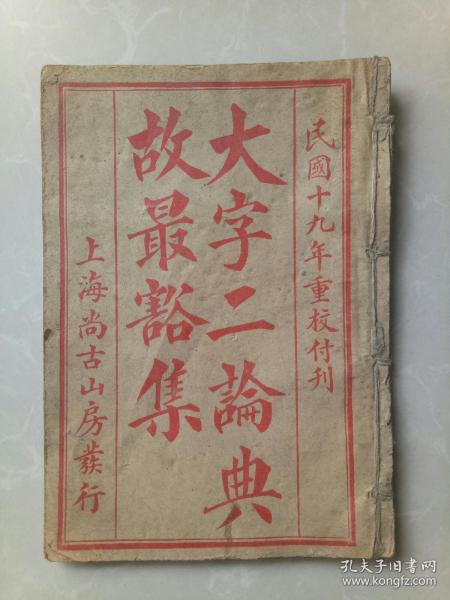 民國十九年重校付刊
大字二論典
故最豁集
上海尚古山房發行
孔夫子旧书网
www.kongfz.com